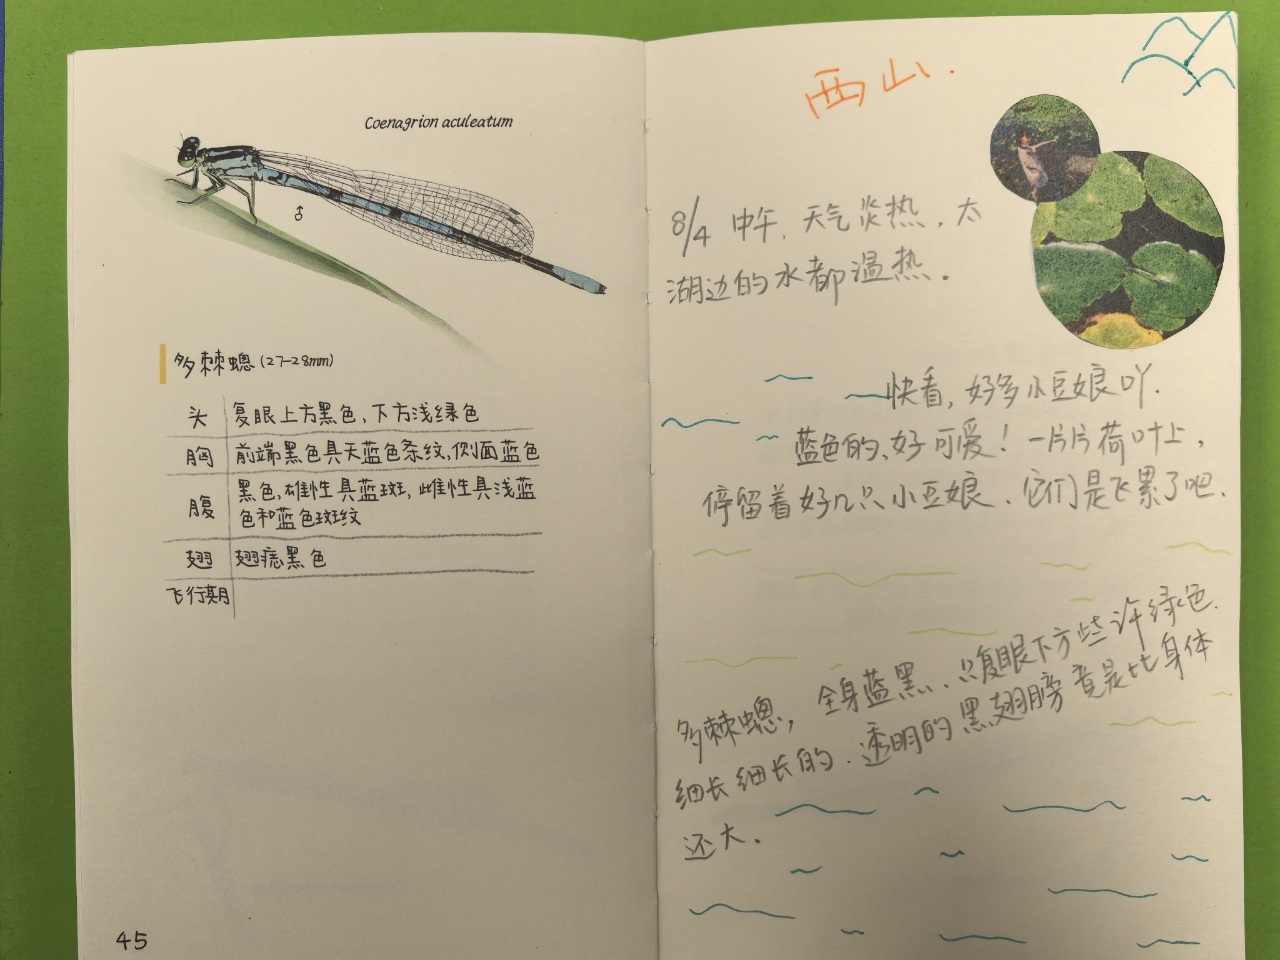 Coenagrion aculeatum
♂
多棘蟌 (27-28mm)
头 复眼上方黑色,下方浅绿色
胸 前端黑色具天蓝色条纹,侧面蓝色
腹 黑色,雄性具蓝斑,雌性具浅蓝
色和蓝色斑纹
翅 翅痣黑色
飞行期
45
西山.
8/4 中午. 天气炎热, 太
湖边的水都温热.
快看, 好多小豆娘吖.
蓝色的、好可爱! 一片片荷叶上,
停留着好几只小豆娘、它们是飞累了吧.
多棘蟌, 全身蓝黑、只复眼下方些许绿色.
细长细长的. 透明的黑翅膀竟是比身体
还大.